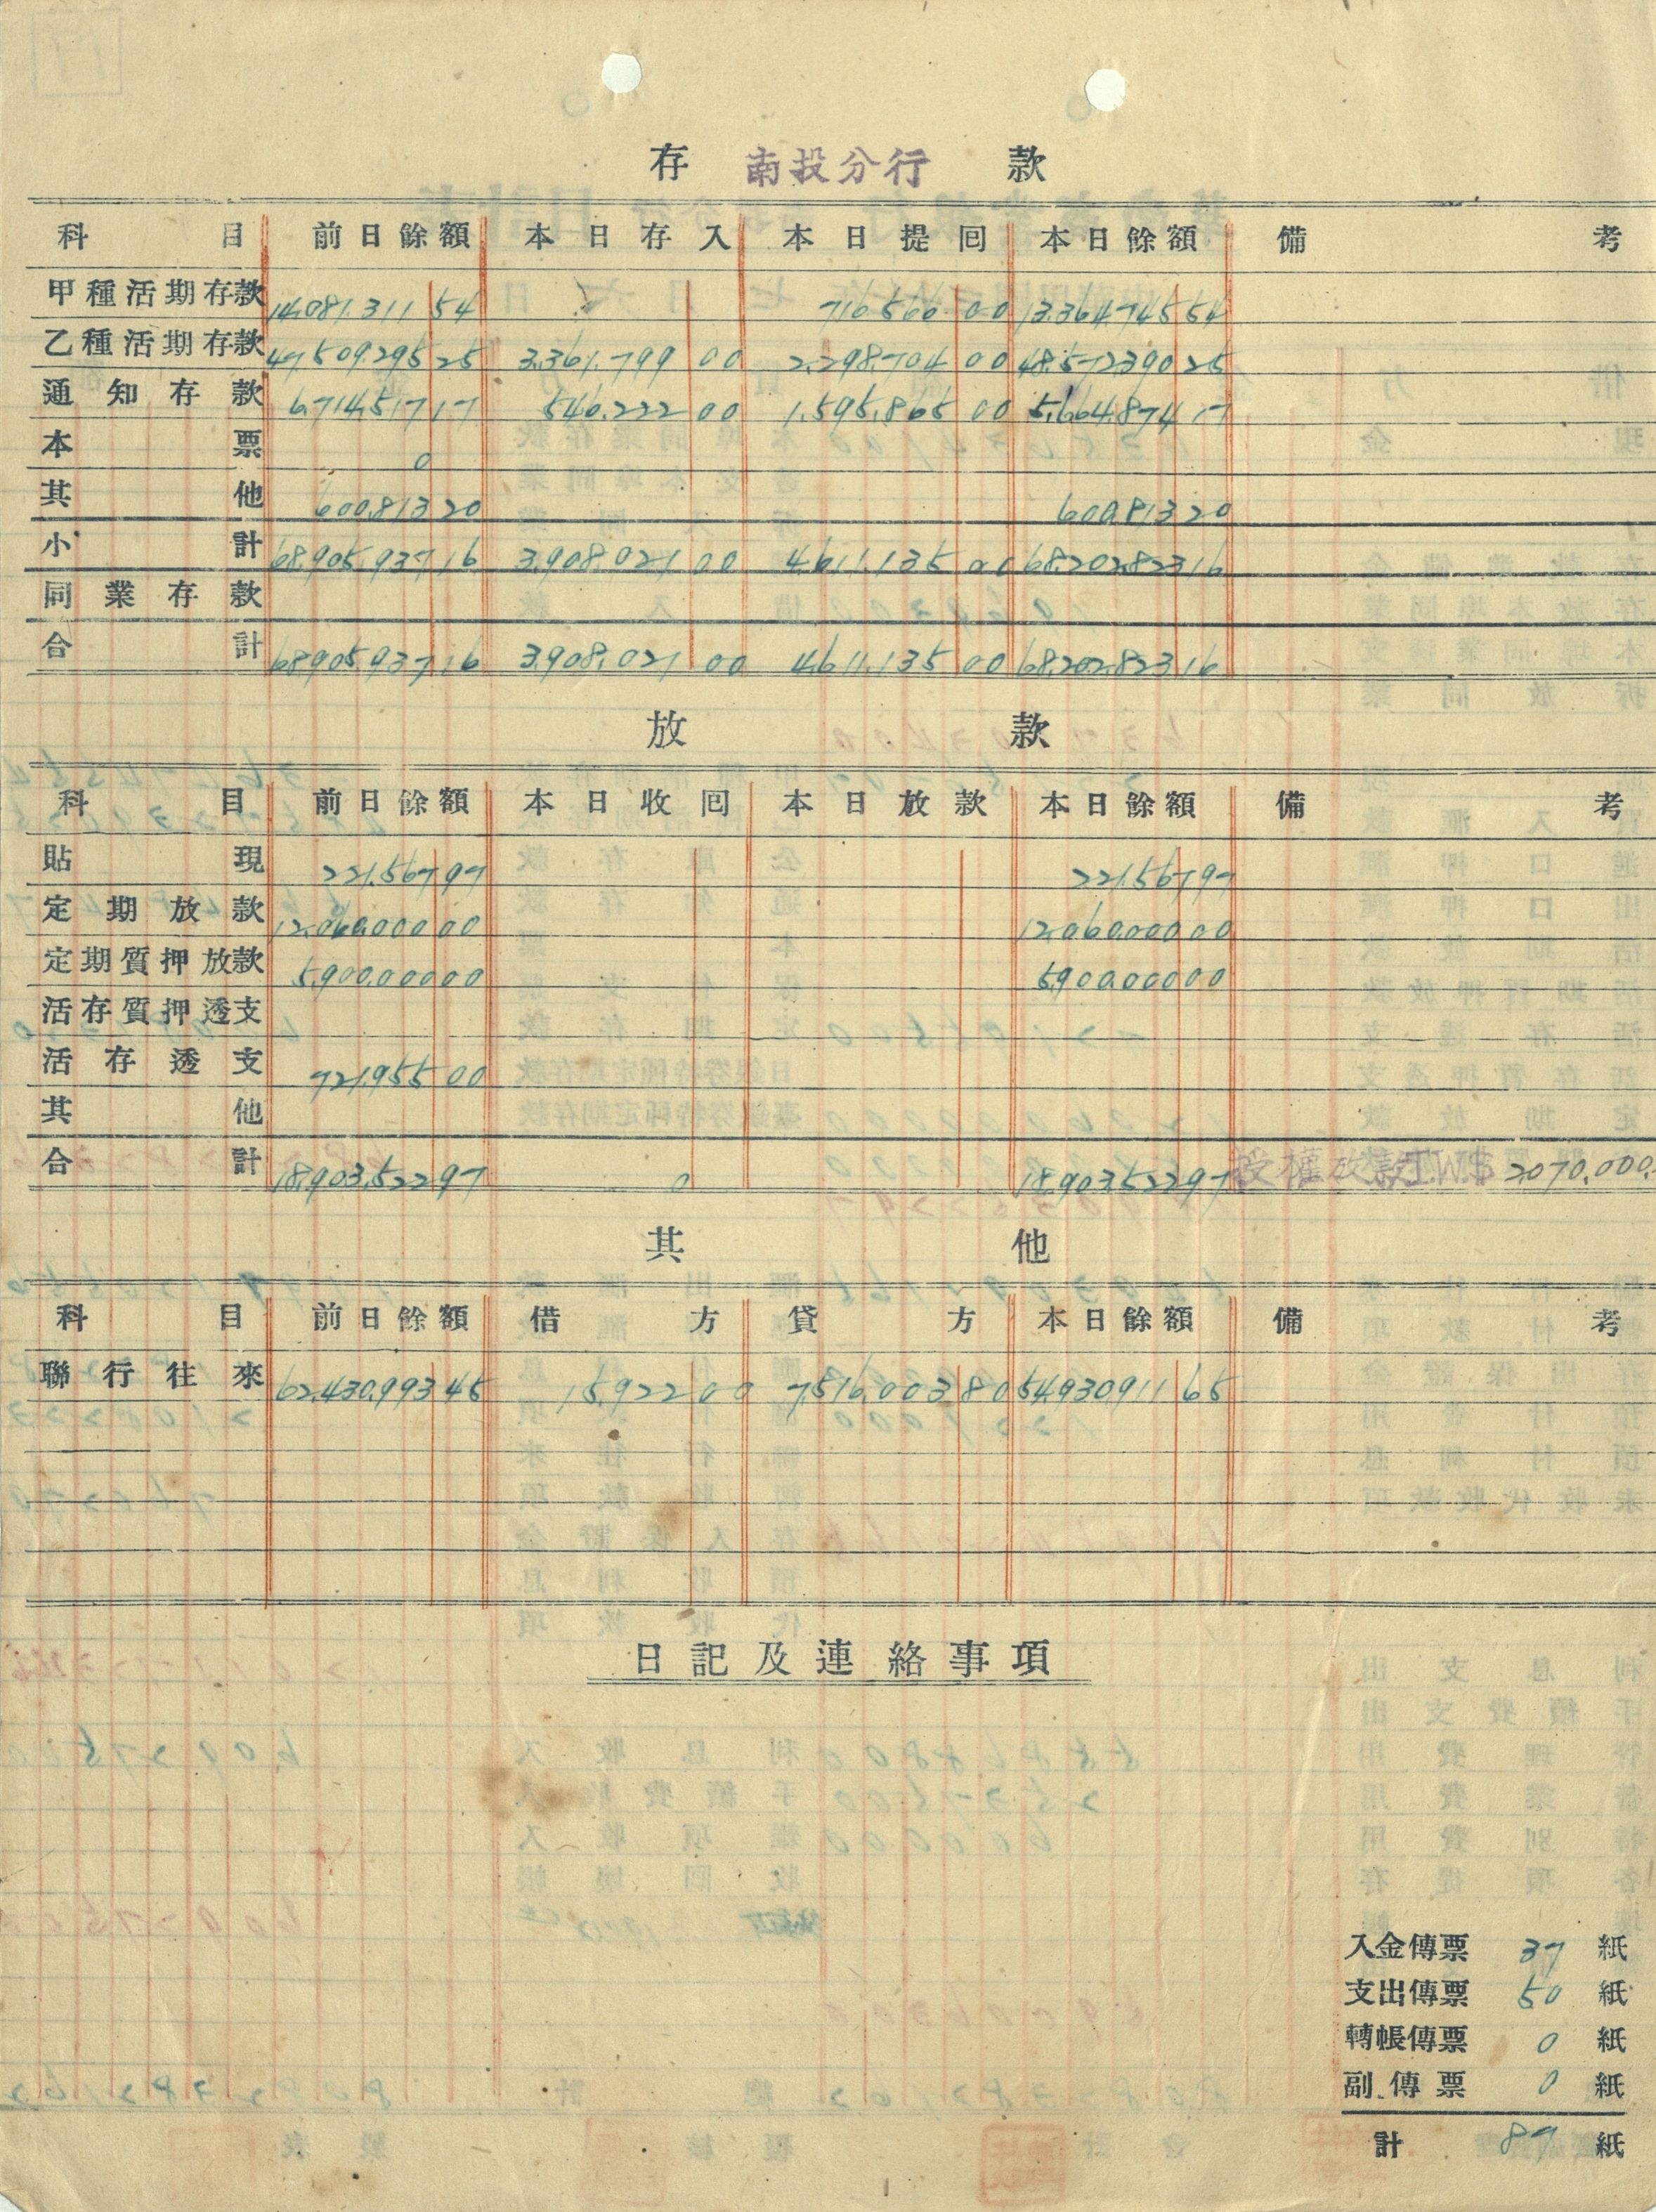 存 南投分行 款
科目 前日餘額 本日存入 本日提囘 本日餘額 備考
甲種活期存款 14,081,311 54 716,566 00 13,364,745 54
乙種活期存款 47,509,295 25 3,361,799 00 2,298,704 00 48,572,390 25
通知存款 6,714,517 17 546,222 00 1,595,865 00 5,664,874 17
本票 0
其他 600,813 20 600,813 20
小計 68,905,937 16 3,908,021 00 4,611,135 00 68,202,823 16
同業存款
合計 68,905,937 16 3,908,021 00 4,611,135 00 68,202,823 16
放款
科目 前日餘額 本日收囘 本日放款 本日餘額 備考
貼現 221,567 97 221,567 97
定期放款 12,060,000 00 12,060,000 00
定期質押放款 5,900,000 00 5,900,000 00
活存質押透支
活存透支 721,955 00
其他
合計 18,903,522 97 0 18,903,522 97 授權放款T.W.$ 2,070,000.
其他
科目 前日餘額 借方 貸方 本日餘額 備考
聯行往來 62,430,993 45 15,922 00 7,516,003 80 54,930,911 65
日記及連絡事項
入金傳票 37 紙
支出傳票 50 紙
轉帳傳票 0 紙
副傳票 0 紙
計 87 紙